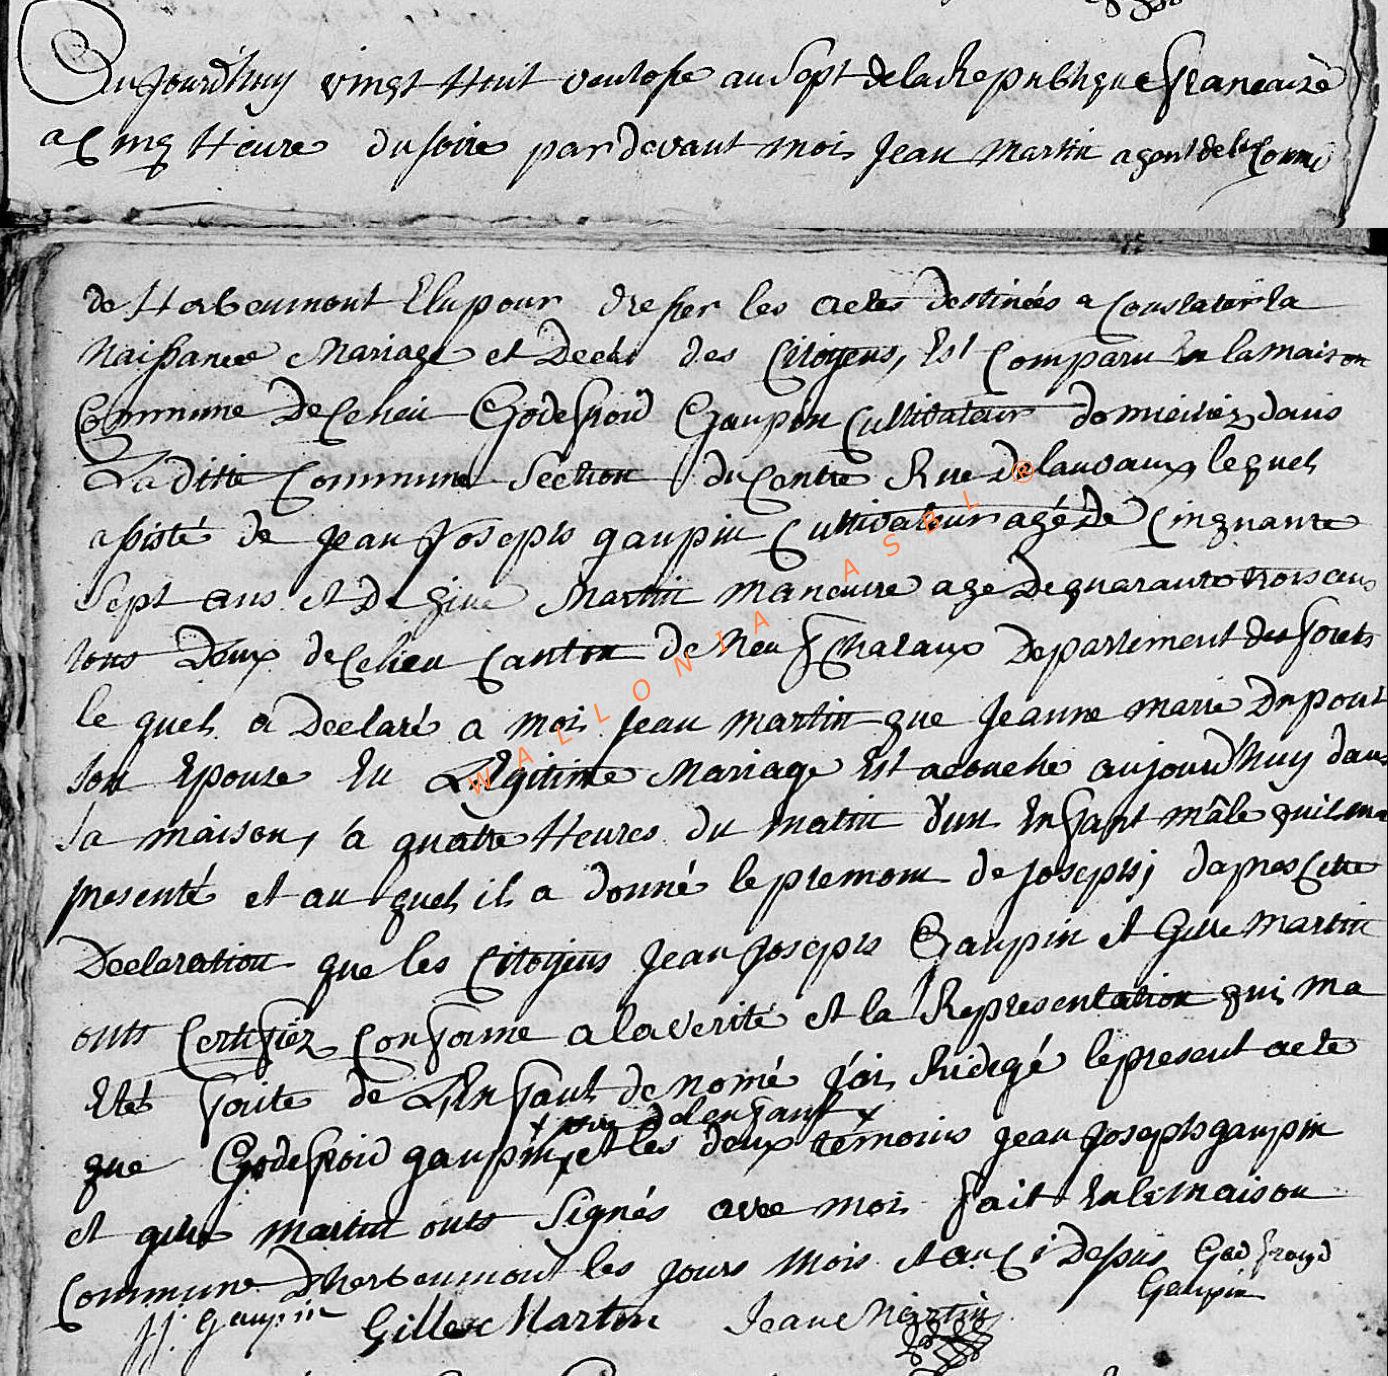 Aujourdhuy vingt Huit ventose an Sept dela Republique francaise
a Cinq Heure du soire par devant moi Jean Martin agent dela Comū
de Herbeumont Elu pour dresser les actes destinés a Constater la
Naissance Mariage et Decés des Citoyens, Est Comparu En la maison
Commune De Celieu Godefroid Gaupin Cultivateur domiciliez dans
La ditte Commune Section du Centre Rue De lauvaux lequel
assisté de jean Joseph gaupin Cultivateur agé De Cinquante
Sept ans et De give Martin maneuvre age De quarante trois ans
tous Deux de Celieu Canton de Neufchataux Departement des forets
le quel a Declaré a moi Jean martin que Jeanne marie Dupont
son Epouse En Legitime Mariage Est acouche aujourdhuy dans
sa maison, a quatre Heures du matin d'un Enfant mâle quil ma
presenté et au quel il a donné le prenom de joseph; dapres Cette
Declaration que les Citoyens Jean Joseph Gaupin et Gille Martin
onts Certifiez Conforme a la verité et la Representation qui ma
Eté faite de LEnfant denomé j'ai Ridegé le present acte
x de lenfant x
que Godefroid gaupin x et les deux temoins jean joseph gaupin
et gille martin onts Signés avec moi fait En la maison
Commune Dherbeumont les jours mois et an Ci Depus Godfroyd
Gaupin
J J Gaupin Gille Martin Jean Martin
WALLONIA ASBL ®